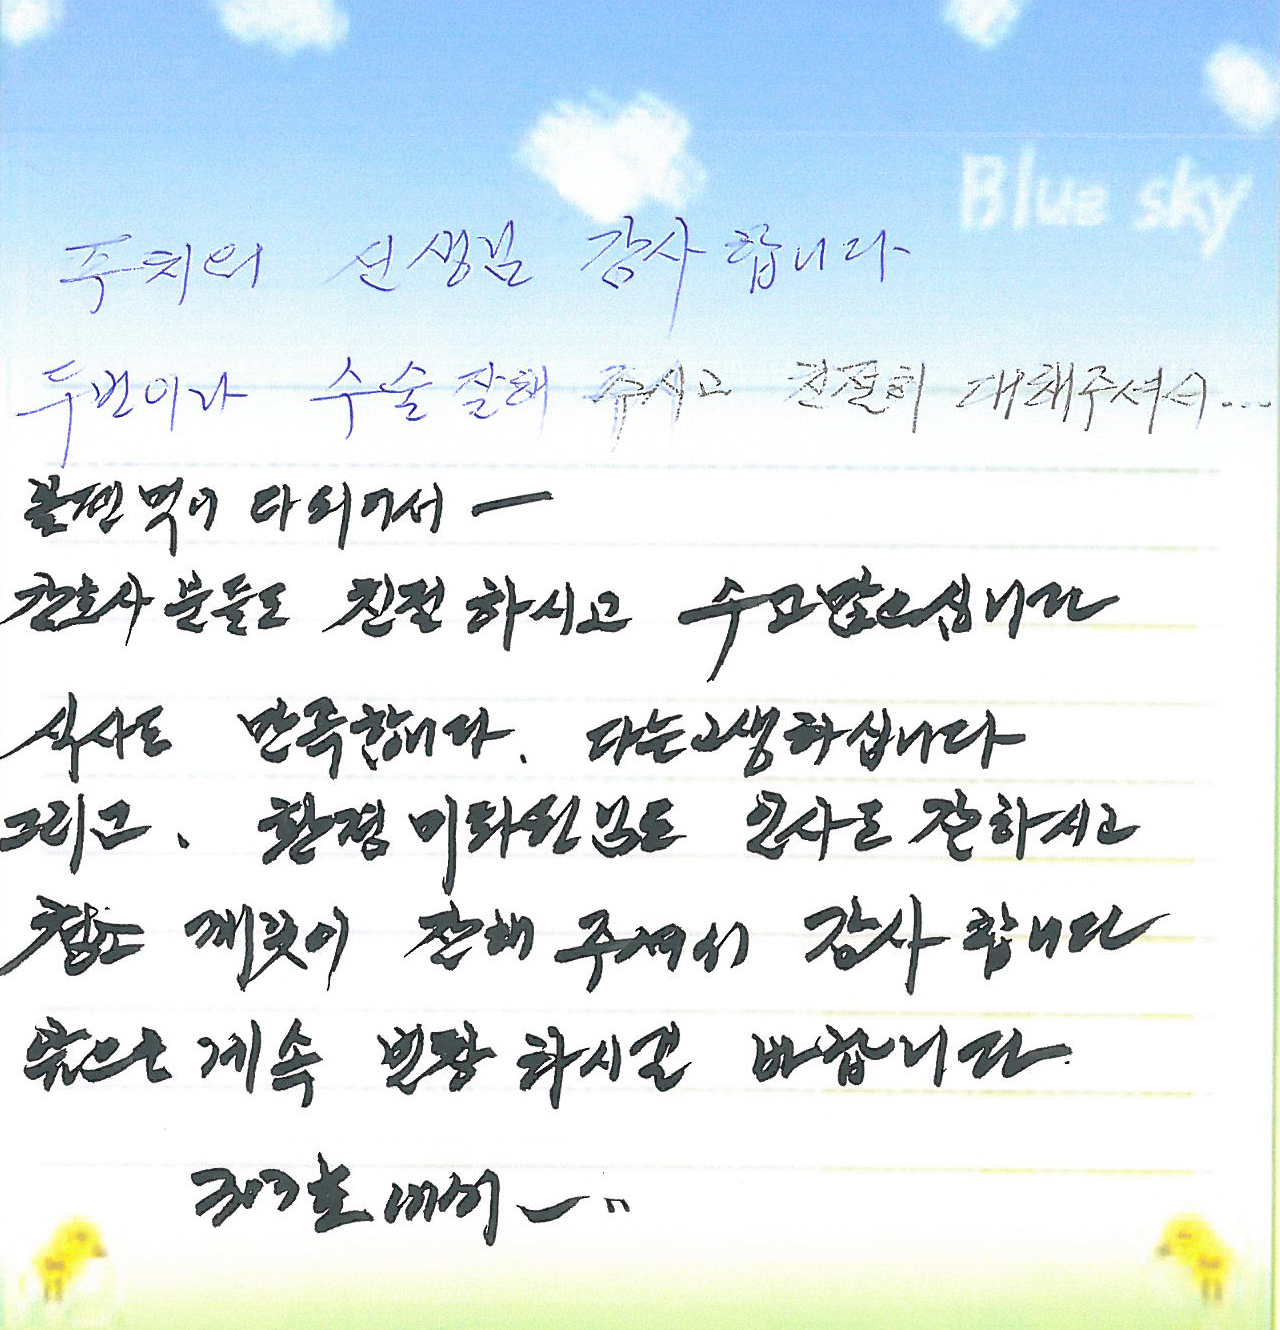 Blue sky
주치의 선생님 감사합니다
두번이나 수술 잘해 주시고 친절히 대해주셔서...
불편 먹이 다 되어서 —
간호사 분들도 친절 하시고 수고많으십니다
식사도 만족합니다. 다들고생하십니다
그리고, 환경 미화원님도 인사도 잘하시고
청소 깨끗이 잘해 주셔서 감사합니다
앞으로 계속 번창 하시길 바랍니다.
303호